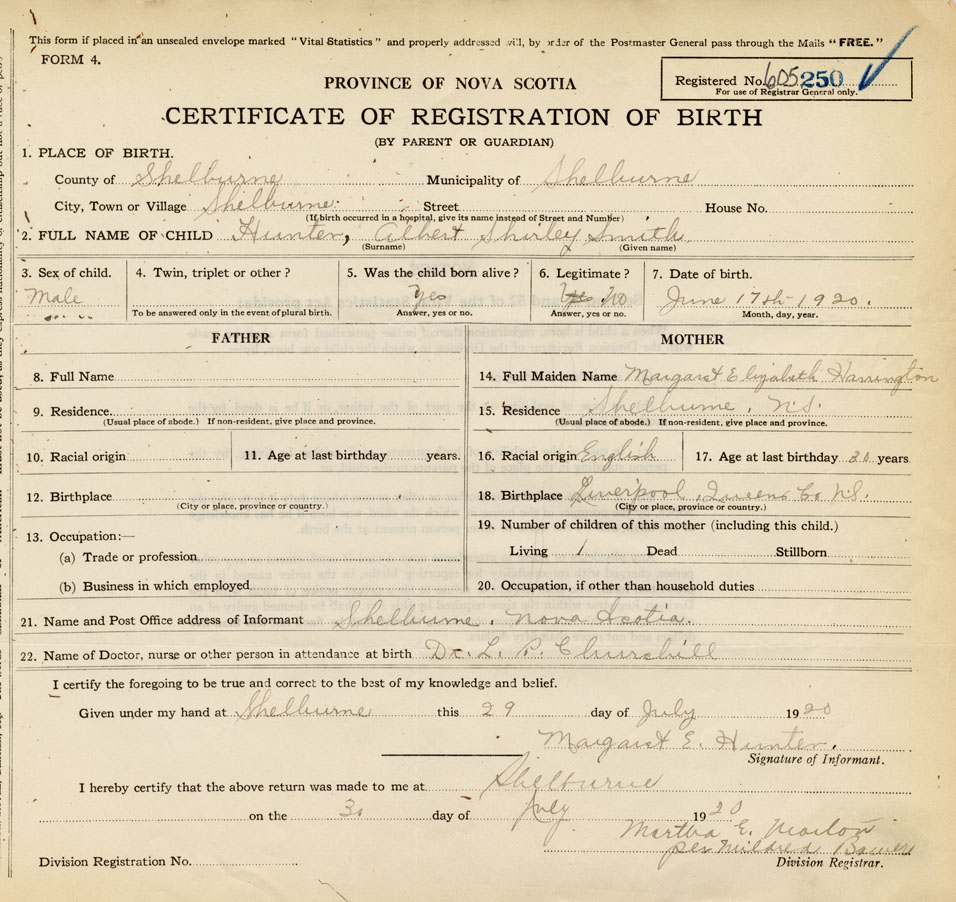 This form if placed in an unsealed envelope marked "Vital Statistics" and properly addressed will, by order of the Postmaster General pass through the Mails "FREE."
FORM 4.
PROVINCE OF NOVA SCOTIA
Registered No. 605250
For use of Registrar General only.
CERTIFICATE OF REGISTRATION OF BIRTH
(BY PARENT OR GUARDIAN)
1. PLACE OF BIRTH.
County of Shelburne Municipality of Shelburne
City, Town or Village Shelburne Street House No.
(If birth occurred in a hospital, give its name instead of Street and Number)
2. FULL NAME OF CHILD Hunter, Albert Shirley Smith
(Surname) (Given name)
3. Sex of child. 4. Twin, triplet or other? 5. Was the child born alive? 6. Legitimate? 7. Date of birth.
Male Yes Yes No June 17th 1920.
To be answered only in the event of plural birth. Answer, yes or no. Answer, yes or no. Month, day, year.
FATHER MOTHER
8. Full Name 14. Full Maiden Name Margaret Elizabeth Harrington
9. Residence. 15. Residence Shelburne, N.S.
(Usual place of abode.) If non-resident, give place and province. (Usual place of abode.) If non-resident, give place and province.
10. Racial origin 11. Age at last birthday years. 16. Racial origin English 17. Age at last birthday 20 years
12. Birthplace 18. Birthplace Liverpool, Queens Co N.S.
(City or place, province or country.) (City or place, province or country.)
19. Number of children of this mother (including this child.)
13. Occupation:—
(a) Trade or profession Living 1 Dead Stillborn
(b) Business in which employed 20. Occupation, if other than household duties
21. Name and Post Office address of Informant Shelburne, Nova Scotia.
22. Name of Doctor, nurse or other person in attendance at birth Dr. L. P. Churchill
I certify the foregoing to be true and correct to the best of my knowledge and belief.
Given under my hand at Shelburne this 29 day of July 1920
Margaret E. Hunter.
Signature of Informant.
I hereby certify that the above return was made to me at Shelburne
on the 30 day of July 1920
Martha E.
per Mildred
Division Registration No. Division Registrar.